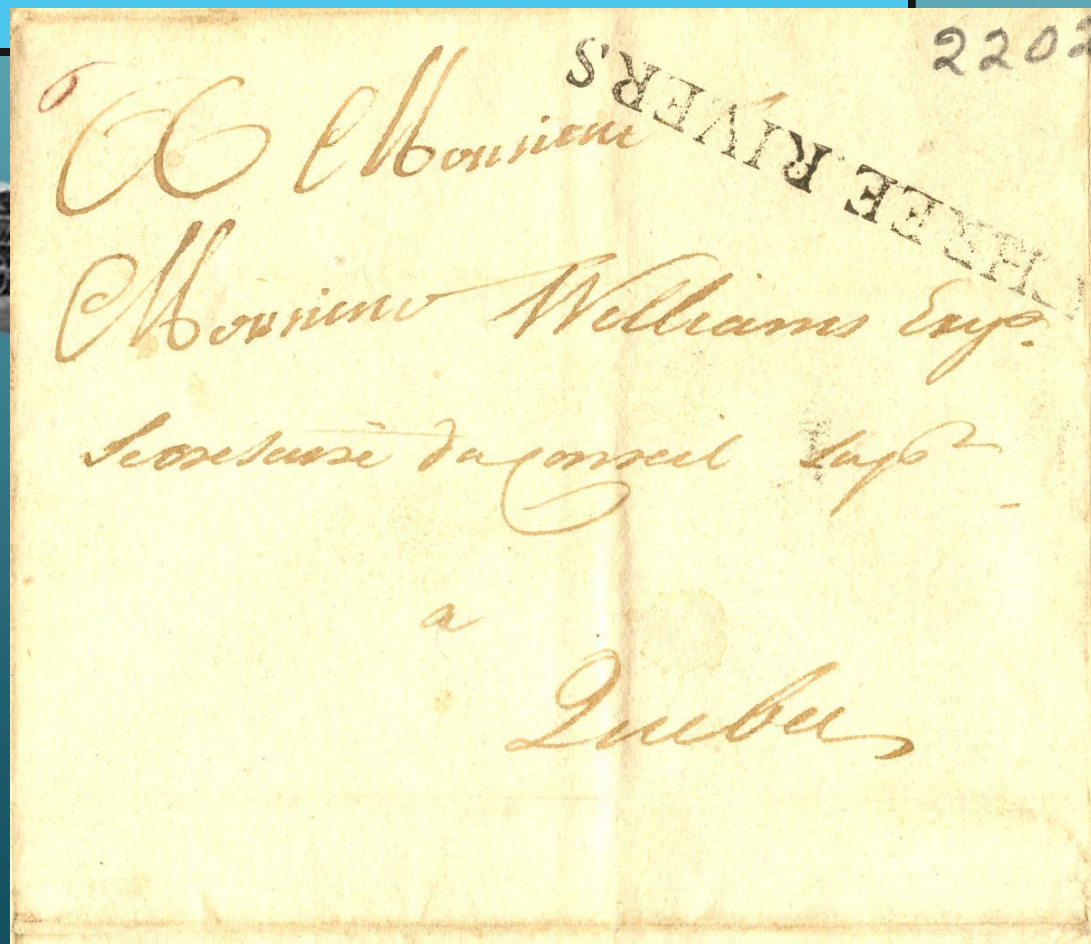 2202
THREE RIVERS
A Monsieur
Monsieur Williams Esqr.
Secretaire du Conseil Supr
a
Quebec